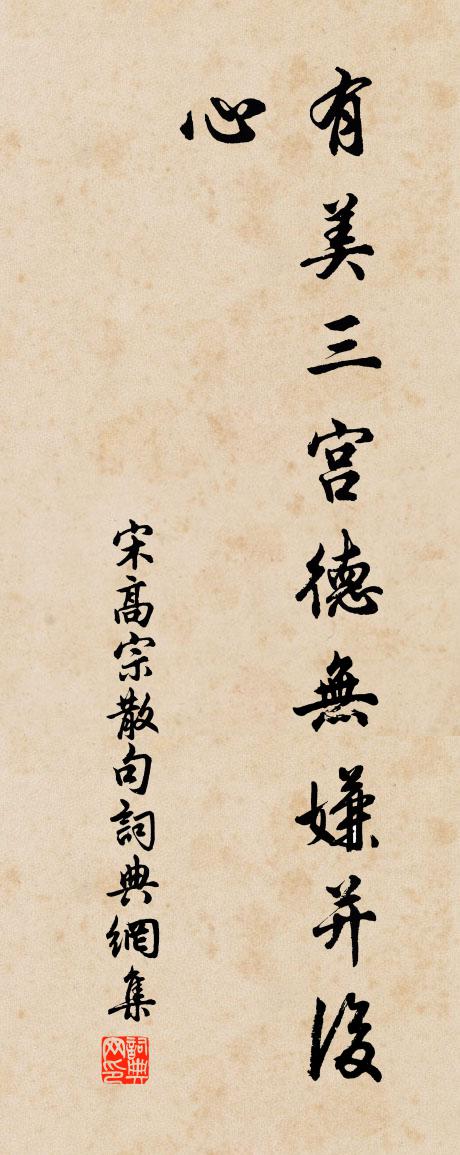 有美三宫德無嫌并後
心
宋高宗散句詞典網集
詞典网印